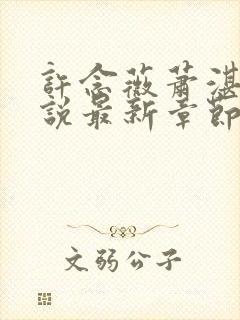 許念薇蕭湛
說最新章節
文弱公子